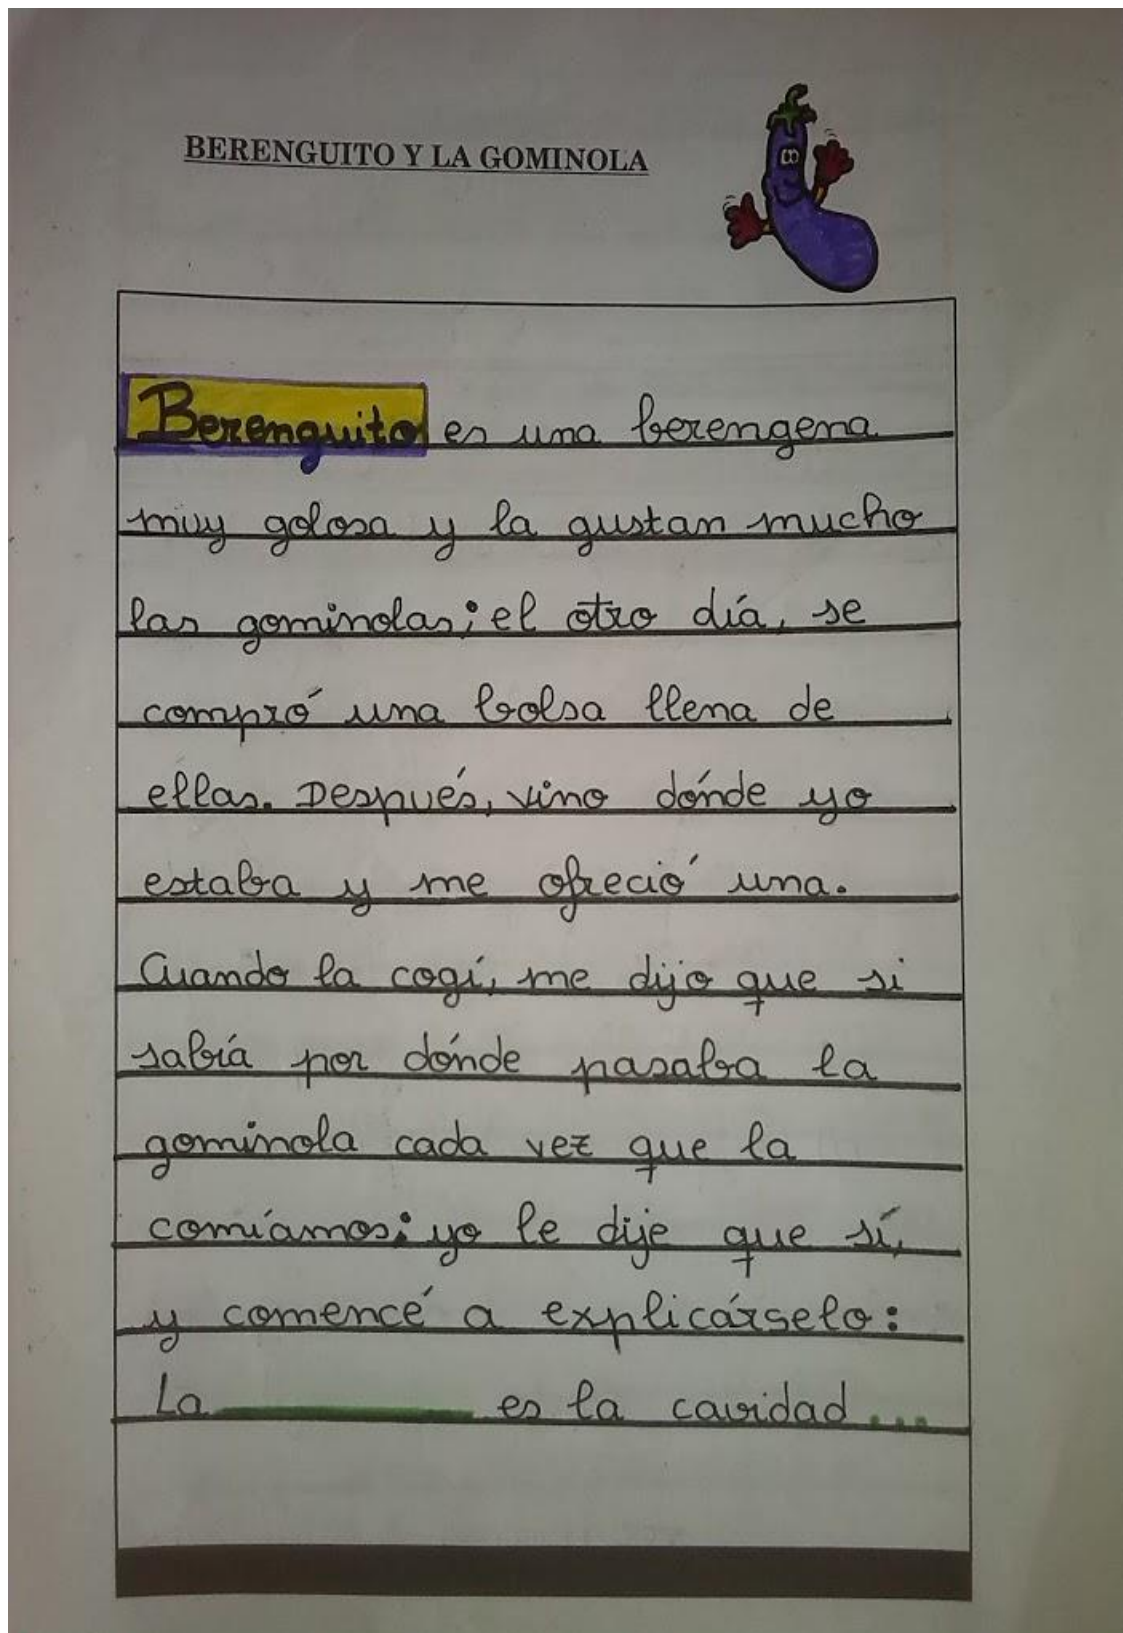 BERENGUITO Y LA GOMINOLA
Berenguito es una berengena
muy golosa y la gustan mucho
las gominolas; el otro día, se
compró una bolsa llena de
ellas. Después, vino dónde yo
estaba y me ofreció una.
Cuando la cogí, me dijo que si
sabía por dónde pasaba la
gominola cada vez que la
comíamos; yo le dije que sí,
y comencé a explicárselo:
La ________ es la cavidad ...